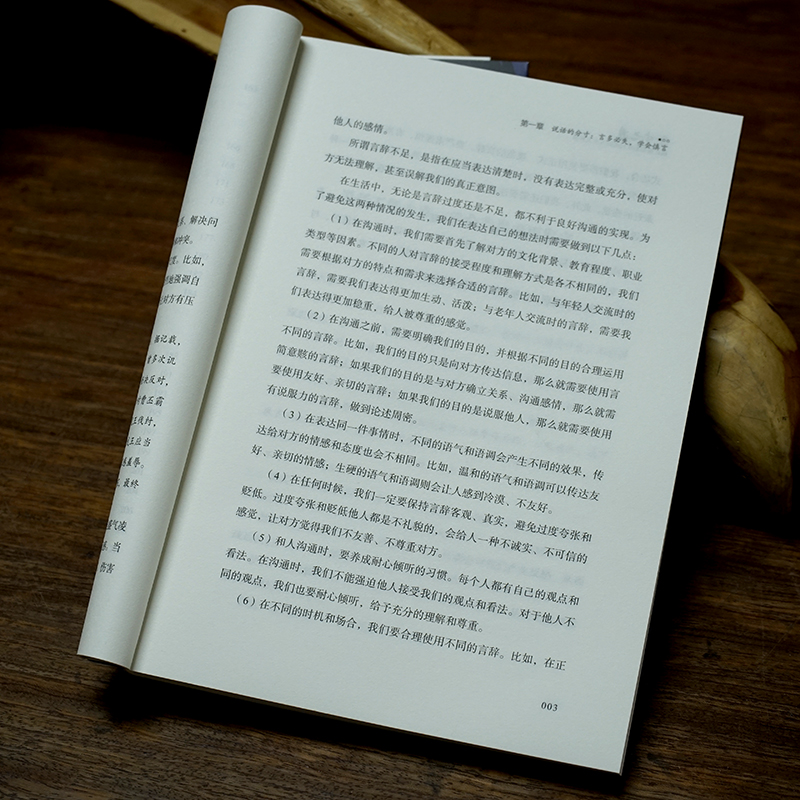 解决问
冲突。
比如，
强调自
对方有压
据记载，
曾多次讥
反对，
曹丕霸
王应当
最终
当
伤害
第一章 说话的分寸：言多必失，学会慎言
他人的感情。
所谓言辞不足，是指在应当表达清楚时，没有表达完整或充分，使对
方无法理解，甚至误解我们的真正意图。
在生活中，无论是言辞过度还是不足，都不利于良好沟通的实现。为
了避免这两种情况的发生，我们在表达自己的想法时需要做到以下几点：
（1）在沟通时，我们需要首先了解对方的文化背景、教育程度、职业
类型等因素。不同的人对言辞的接受程度和理解方式是各不相同的，我们
需要根据对方的特点和需求来选择合适的言辞。比如，与年轻人交流时的
言辞，需要我们表达得更加生动、活泼；与老年人交流时的言辞，需要我
们表达得更加稳重，给人被尊重的感觉。
（2）在沟通之前，需要明确我们的目的，并根据不同的目的合理运用
不同的言辞。比如，我们的目的只是向对方传达信息，那么就需要使用言
简意赅的言辞；如果我们的目的是与对方确立关系、沟通感情，那么就需
要使用友好、亲切的言辞；如果我们的目的是说服他人，那么就需要使用
有说服力的言辞，做到论述周密。
（3）在表达同一件事情时，不同的语气和语调会产生不同的效果，传
达给对方的情感和态度也会不相同。比如，温和的语气和语调可以传达友
好、亲切的情感；生硬的语气和语调则会让人感到冷漠、不友好。
（4）在任何时候，我们一定要保持言辞客观、真实，避免过度夸张和
贬低。过度夸张和贬低他人都是不礼貌的，会给人一种不诚实、不可信的
感觉，让对方觉得我们不友善、不尊重对方。
（5）和人沟通时，要养成耐心倾听的习惯。每个人都有自己的观点和
看法。在沟通时，我们不能强迫他人接受我们的观点和看法。对于他人不
同的观点，我们也要耐心倾听，给予充分的理解和尊重。
（6）在不同的时机和场合，我们要合理使用不同的言辞。比如，在正
003